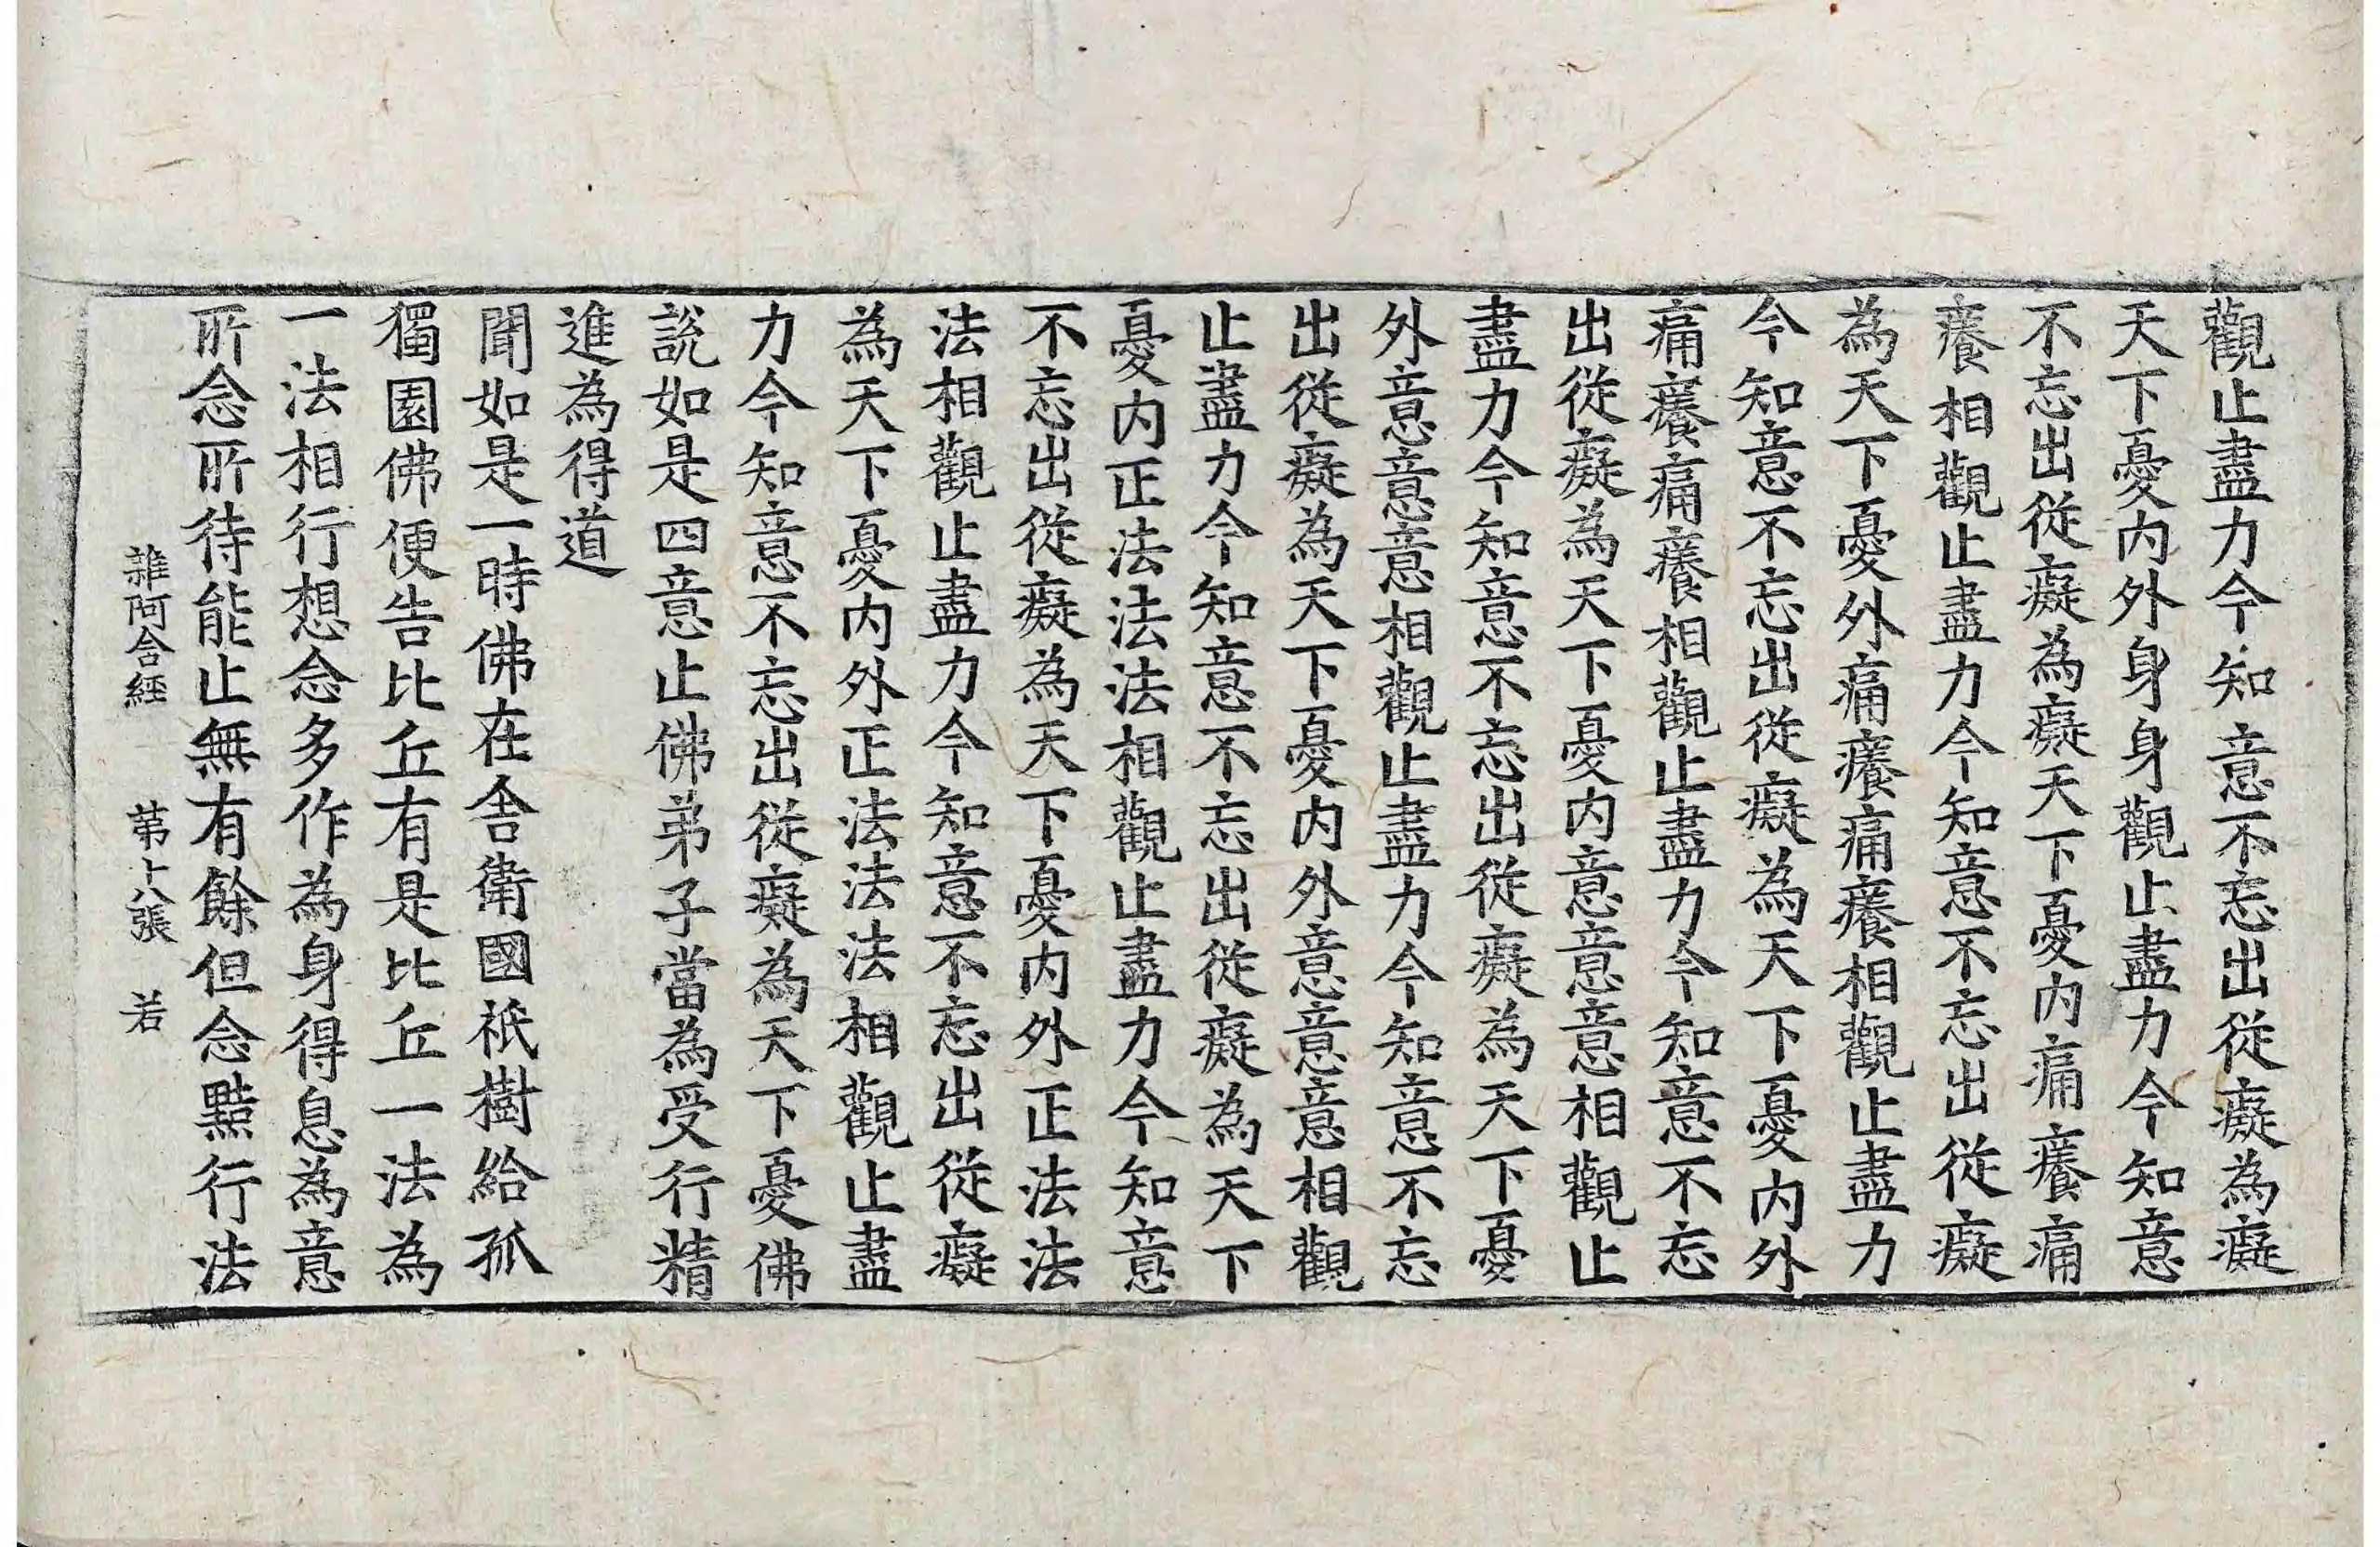 觀止盡力今知意不忘出從癡為癡
天下憂內外身身觀止盡力今知意
不忘出從癡為癡天下憂內痛癢痛
癢相觀止盡力今知意不忘出從癡
為天下憂外痛癢痛癢相觀止盡力
今知意不忘出從癡為天下憂內外
痛癢痛癢相觀止盡力今知意不忘
出從癡為天下憂內意意意相觀止
盡力今知意不忘出從癡為天下憂
外意意意相觀止盡力今知意不忘
出從癡為天下憂內外意意意相觀
止盡力今知意不忘出從癡為天下
憂內正法法法相觀止盡力今知意
不忘出從癡為天下憂內外正法法
法相觀止盡力今知意不忘出從癡
為天下憂內外正法法法相觀止盡
力今知意不忘出從癡為天下憂佛
說如是四意止佛弟子當為受行精
進為得道
聞如是一時佛在舍衛國祇樹給孤
獨園佛便告比丘有是比丘一法為
一法相行想念多作為身得息為意
所念所待能止無有餘但念黠行法
雜阿含經 第十八張 若